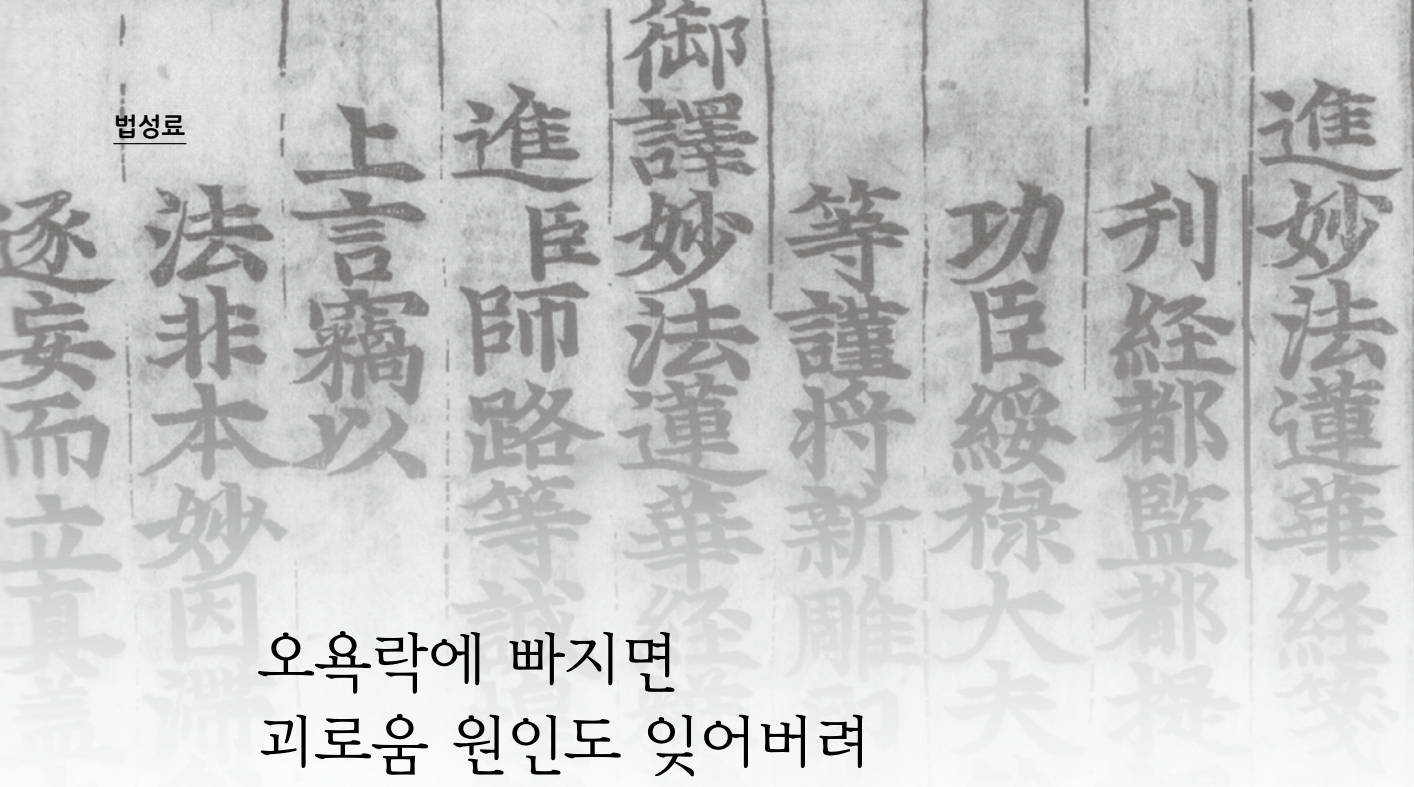 법성료
進妙法蓮華経箋
刊経都監都提
功臣綏禄大夫
等謹将新雕
御譯妙法蓮華経
進臣師路等誠
上言竊以
法非本妙因滯
逐妄而立真蓋
오욕락에 빠지면
괴로움 원인도 잊어버려